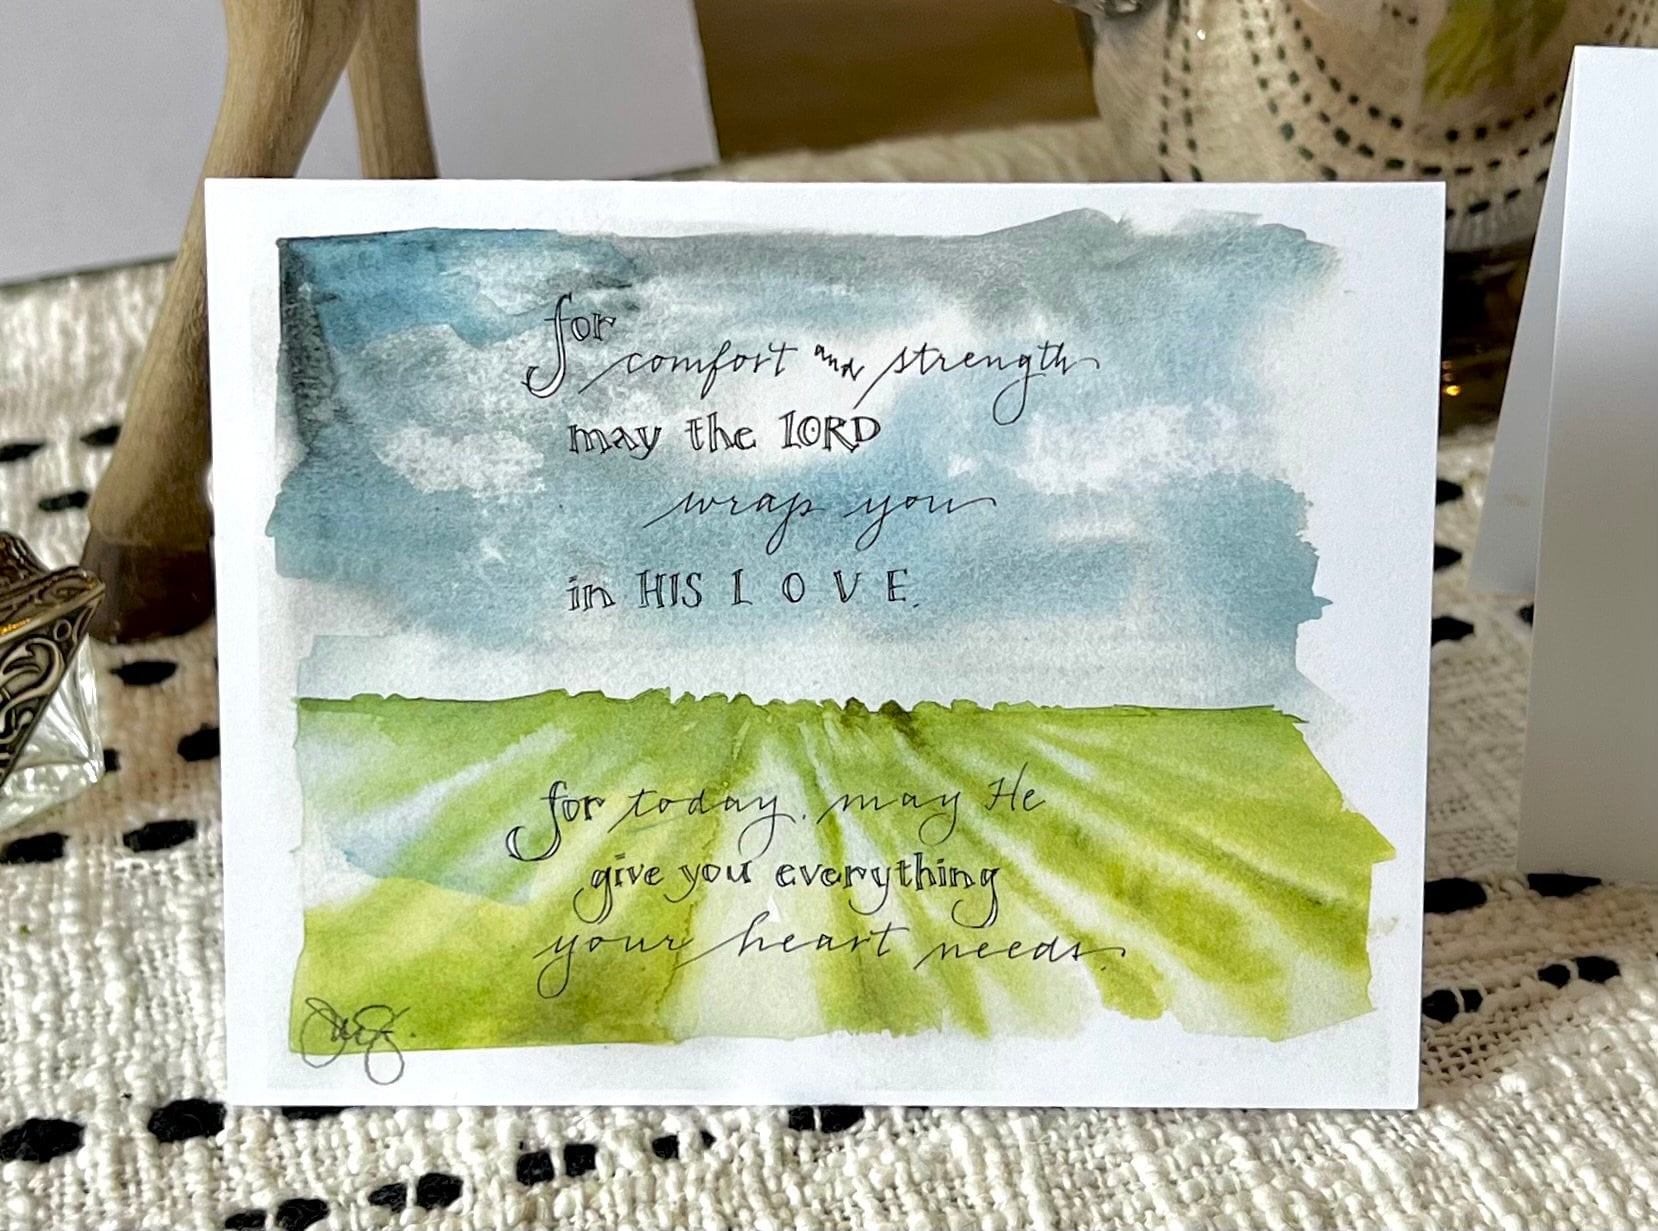 for
comfort and strength
may the LORD
wrap you
in HIS LOVE.
for today. may He
give you everything
your heart needs.